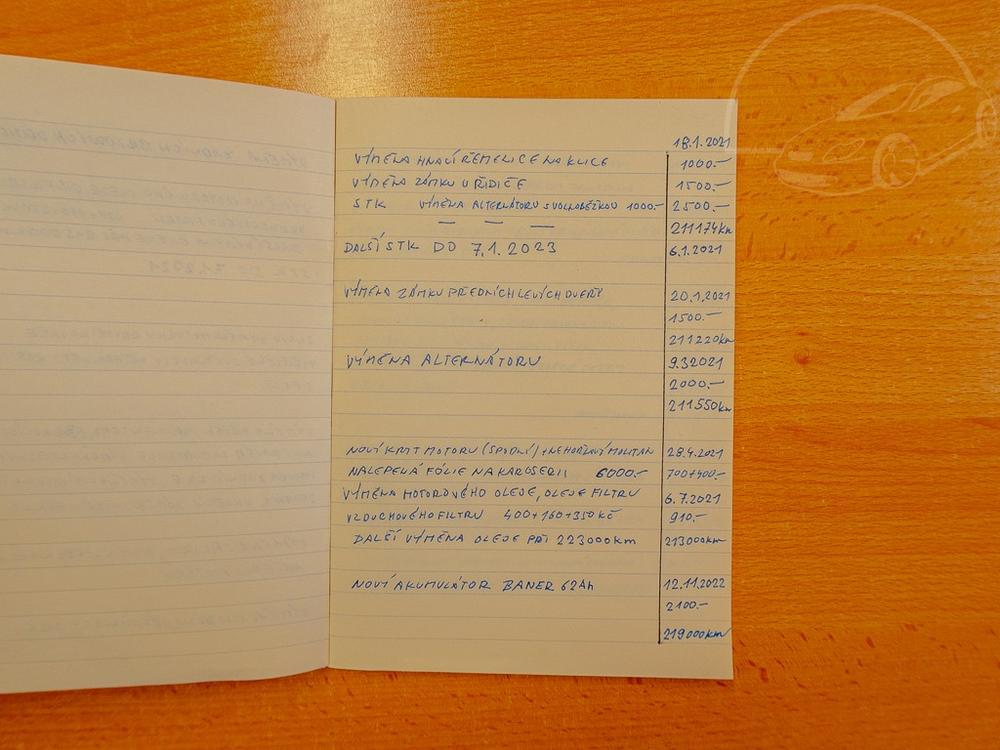 18.1.2021
VÝMĚNA HNACÍ ŘEMELICE NA KLICE 1000.-
VÝMĚNA ZÁMKU U ŘIDIČE 1500.-
STK VÝMĚNA ALTERNÁTORU S VOLNOBĚŽKOU 1000.- 2500.-
— — — 211174km
DALŠÍ STK DO 7.1.2023 6.1.2021
VÝMĚNA ZÁMKU PŘEDNÍCH LEVÝCH DVEŘÍ 20.1.2021
1500.-
211220km
VÝMĚNA ALTERNÁTORU 9.3.2021
2000.-
211550km
NOVÍ KRYT MOTORU (SPODNÍ) + NEHOŘLAVÍ MOLITAN 28.4.2021
NALEPENÁ FÓLIE NA KAROSERII 6000.- 700+400.-
VÝMĚNA MOTOROVÉHO OLEJE, OLEJE FILTRU 6.7.2021
VZDUCHOVÉHO FILTRU 400+160+350 KČ 910.-
DALŠÍ VÝMĚNA OLEJE PŘI 223000km 213000km
NOVÍ AKUMULÁTOR BANER 62Ah 12.11.2022
2100.-
219000km